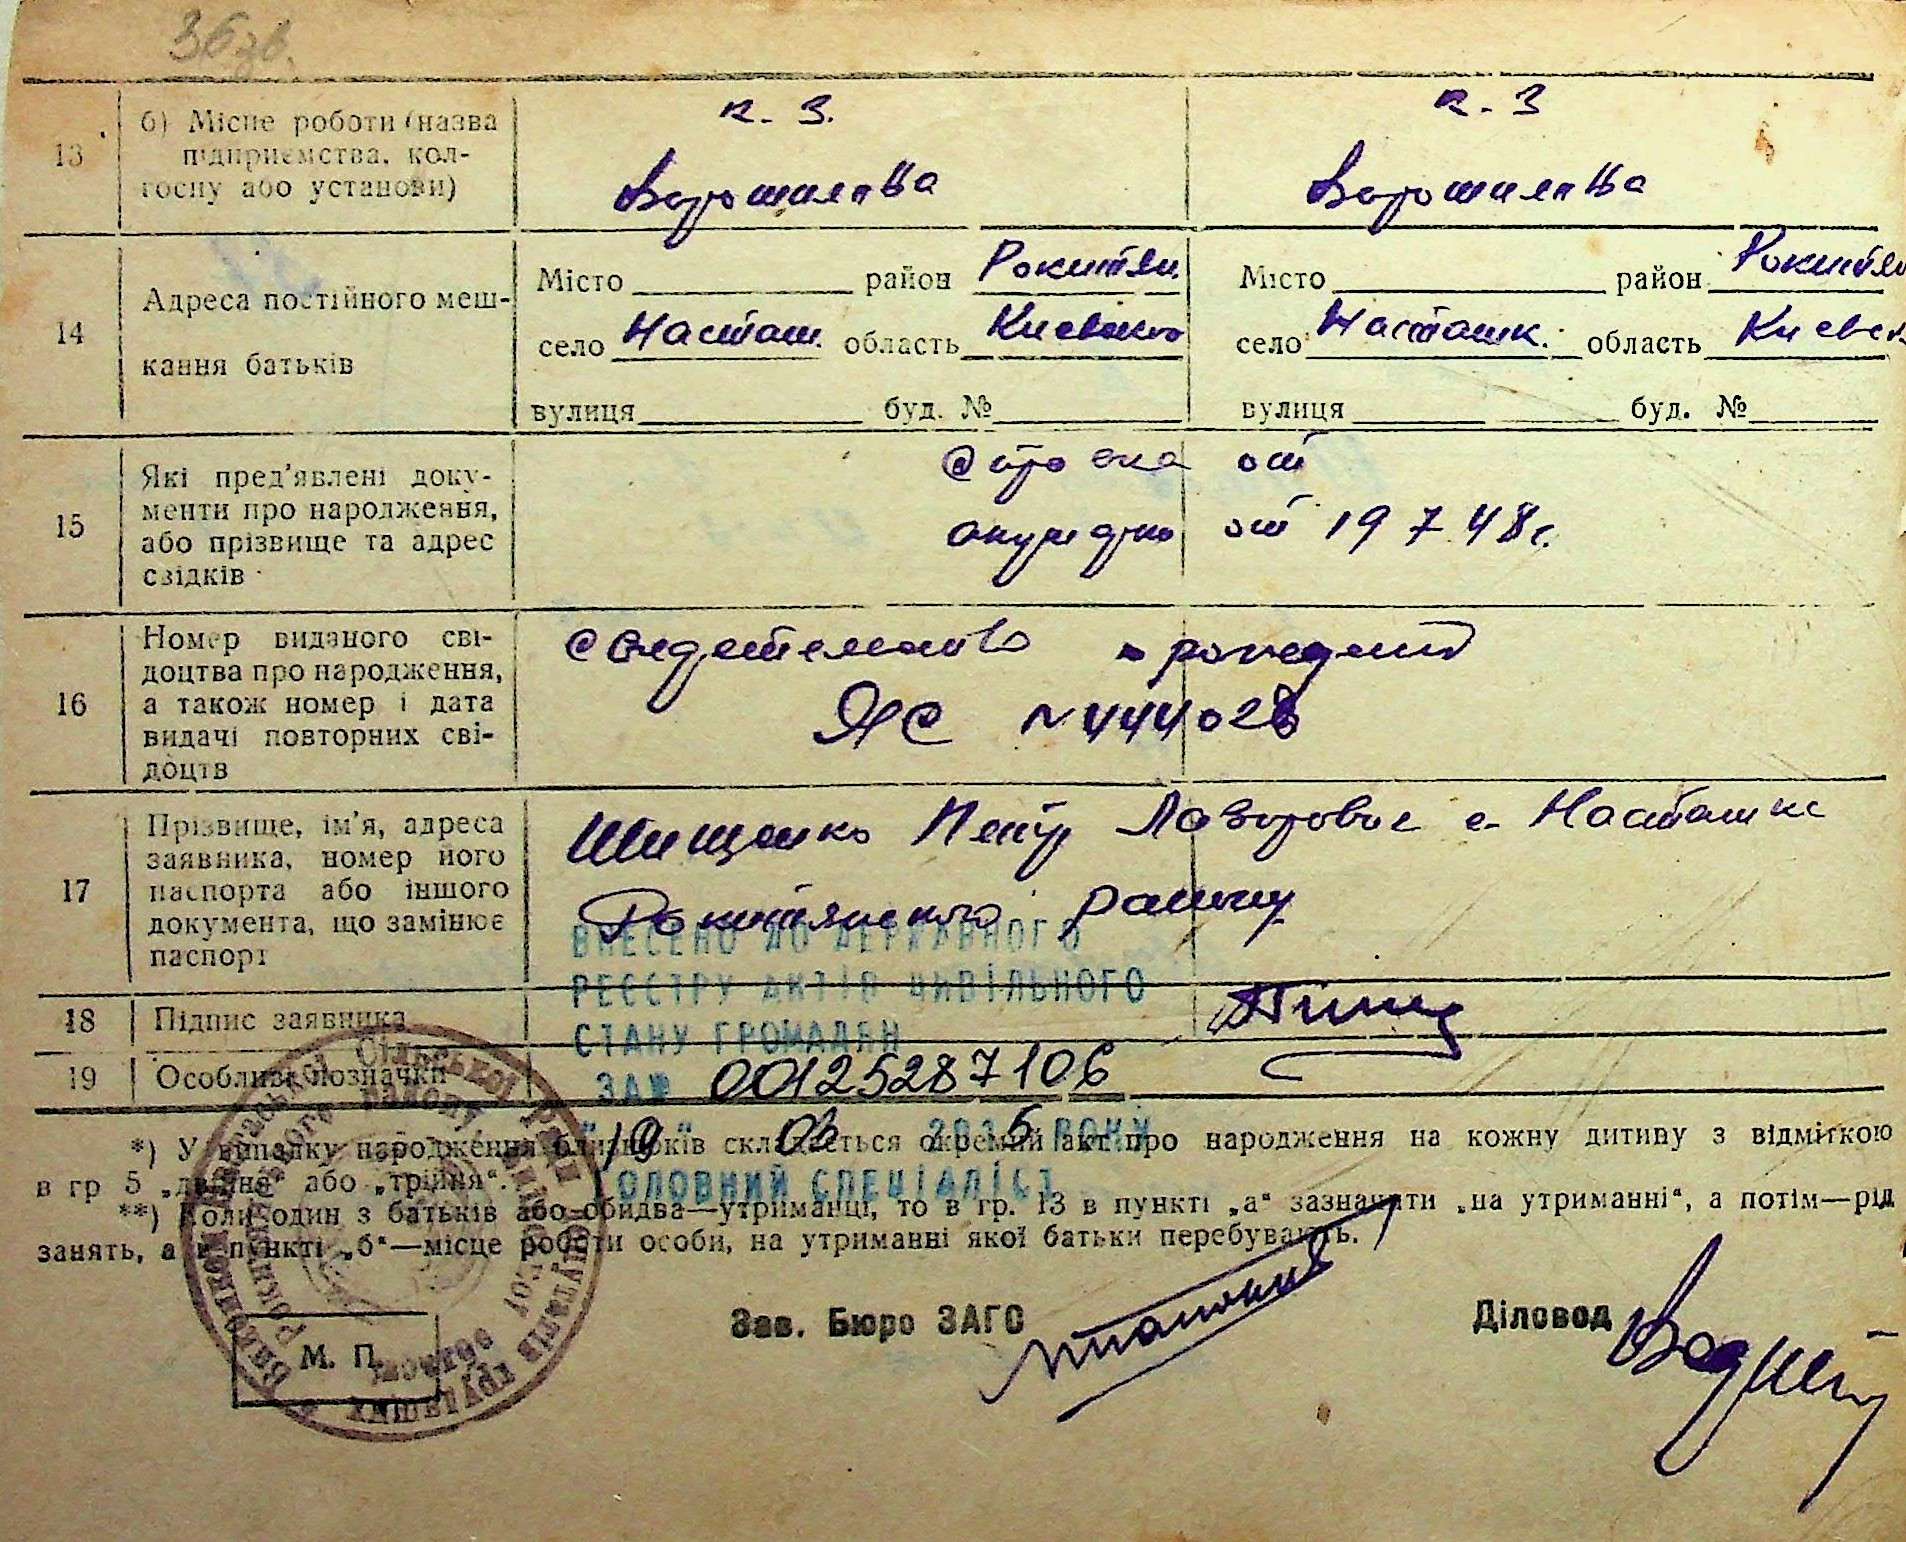 36 зв.
13
б) Місце роботи (назва
підприємства, кол-
госпу або установи)
к. з.
Ворошилова
к. з
Ворошилова
14
Адреса постійного меш-
кання батьків
Місто район Рокитян.
село Насташ. область Киевско
вулиця буд. №
Місто район Рокитян
село Насташк. область Киевск
вулиця буд. №
15
Які пред'явлені доку-
менти про народження,
або прізвище та адрес
свідків
от
от 19 7 48 г.
16
Номер виданого сві-
доцтва про народження,
а також номер і дата
видачі повторних сві-
доцтв
ЯС № 444028
17
Прізвище, ім'я, адреса
заявника, номер його
паспорта або іншого
документа, що замінює
паспорт
с Насташка
ВНЕСЕНО ДО ДЕРЖАВНОГО
РЕЄСТРУ АКТІВ ЦИВІЛЬНОГО
СТАНУ ГРОМАДЯН
18
Підпис заявника
19
Особливі позначки
ЗА № 00125287106
РОКУ
ГОЛОВНИЙ СПЕЦІАЛІСТ
*) У випадку народження близнюків складається окремий акт про народження на кожну дитину з відміткою
в гр 5 „двійня“ або „трійня“.
**) Коли один з батьків або обидва—утриманці, то в гр. 13 в пункті „а“ зазначати „на утриманні“, а потім—рід
занять, а в пункті „б“—місце роботи особи, на утриманні якої батьки перебувають.
Зав. Бюро ЗАГС
Діловод
М. П.